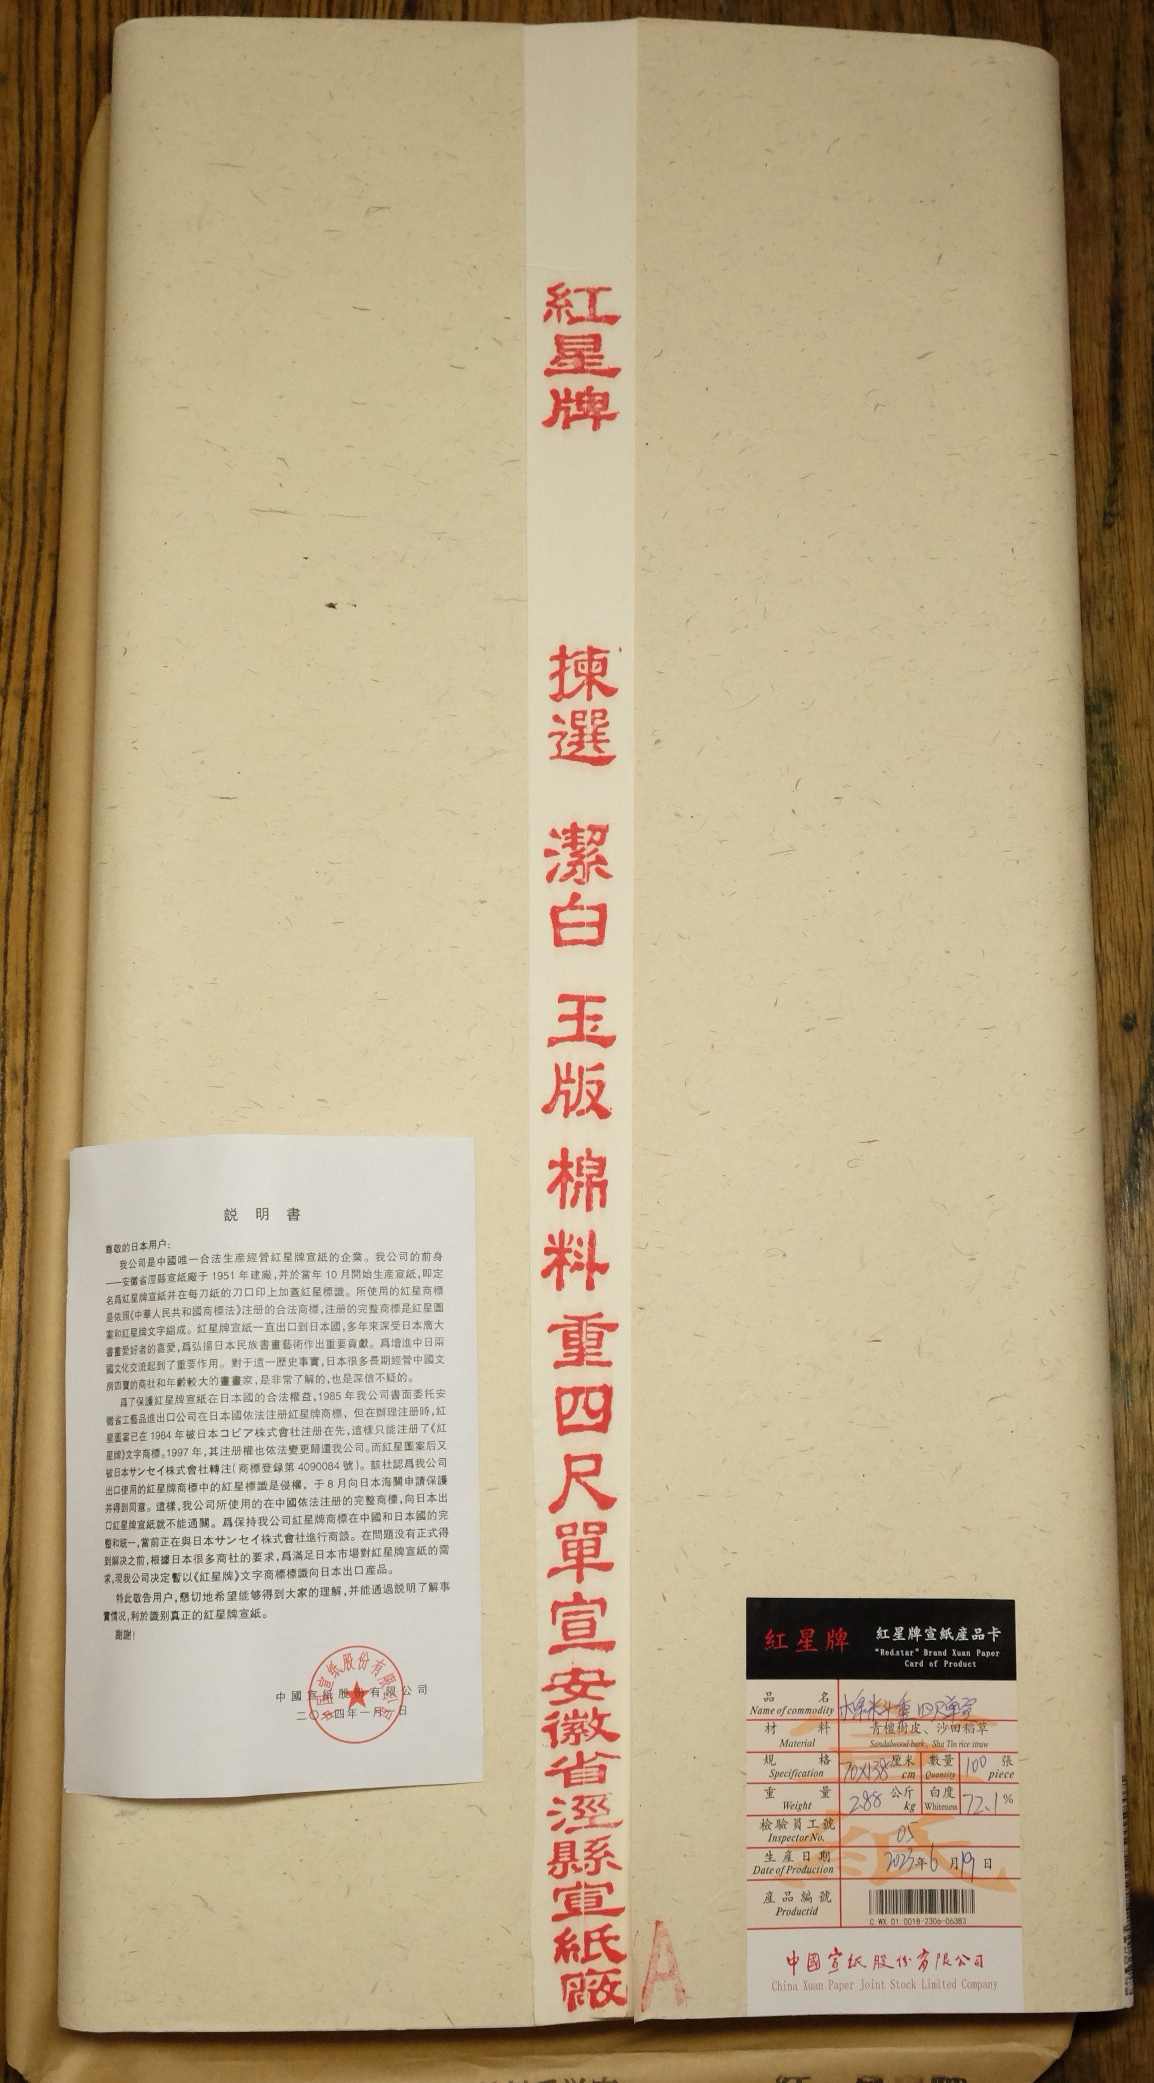 紅星牌
揀選 潔白 玉版 棉料重四尺單宣 安徽省涇縣宣紙厰
A
説明書
尊敬的日本用户:
我公司是中國唯一合法生産經營紅星牌宣紙的企業。我公司的前身
——安徽省涇縣宣紙廠于1951年建廠,并於當年10月開始生産宣紙,即定
名爲紅星牌宣紙并在每刀紙的刀口印上加蓋紅星標識。所使用的紅星商標
是依照《中華人民共和國商標法》注册的合法商標,注册的完整商標是紅星圖
案和紅星牌文字組成。紅星牌宣紙一直出口到日本國,多年來深受日本廣大
書畫愛好者的喜愛,爲弘揚日本民族書畫藝術作出重要貢獻。爲增進中日兩
國文化交流起到了重要作用。對于這一歷史事實,日本很多長期經營中國文
房四寶的商社和年齡較大的書畫家,是非常了解的,也是深信不疑的。
爲了保護紅星牌宣紙在日本國的合法權益,1985年我公司書面委托安
徽省工藝品進出口公司在日本國依法注册紅星牌商標,但在辦理注册時,紅
星圖案已在1984年被日本コピア株式會社注册在先,這樣只能注册了《紅
星牌》文字商標。1997年,其注册權也依法變更歸還我公司。而紅星圖案后又
被日本サンセイ株式會社轉注(商標登録第4090084號)。該社認爲我公司
出口使用的紅星牌商標中的紅星標識是侵權,于8月向日本海關申請保護
并得到同意。這樣,我公司所使用的在中國依法注册的完整商標,向日本出
口紅星牌宣紙就不能通關。爲保持我公司紅星牌商標在中國和日本國的完
整和統一,當前正在與日本サンセイ株式會社進行商談。在問題没有正式得
到解決之前,根據日本很多商社的要求,爲滿足日本市場對紅星牌宣紙的需
求,現我公司决定暫以《紅星牌》文字商標標識向日本出口産品。
特此敬告用户,懇切地希望能够得到大家的理解,并能通過説明了解事
實情况,利於識别真正的紅星牌宣紙。
謝謝!
中國宣紙股份有限公司
二〇一四年一月 日
紅星牌 紅星牌宣紙産品卡
"Redstar" Brand Xuan Paper
Card of Product
品名 Name of commodity 棉料重四尺單宣
材料 Material 青檀樹皮、沙田稻草
Sandalwood bark、Sha Tin rice straw
規格 Specification 70×138 厘米 cm 數量 Quantity 100 張 piece
重量 Weight 2.88 公斤 kg 白度 Whiteness 72.1 %
檢驗員工號 Inspector No. 05
生産日期 Date of Production 2023年6月19日
産品編號 Productid
C WX 01 0018-2306-06383
中國宣紙股份有限公司
China Xuan Paper Joint Stock Limited Company